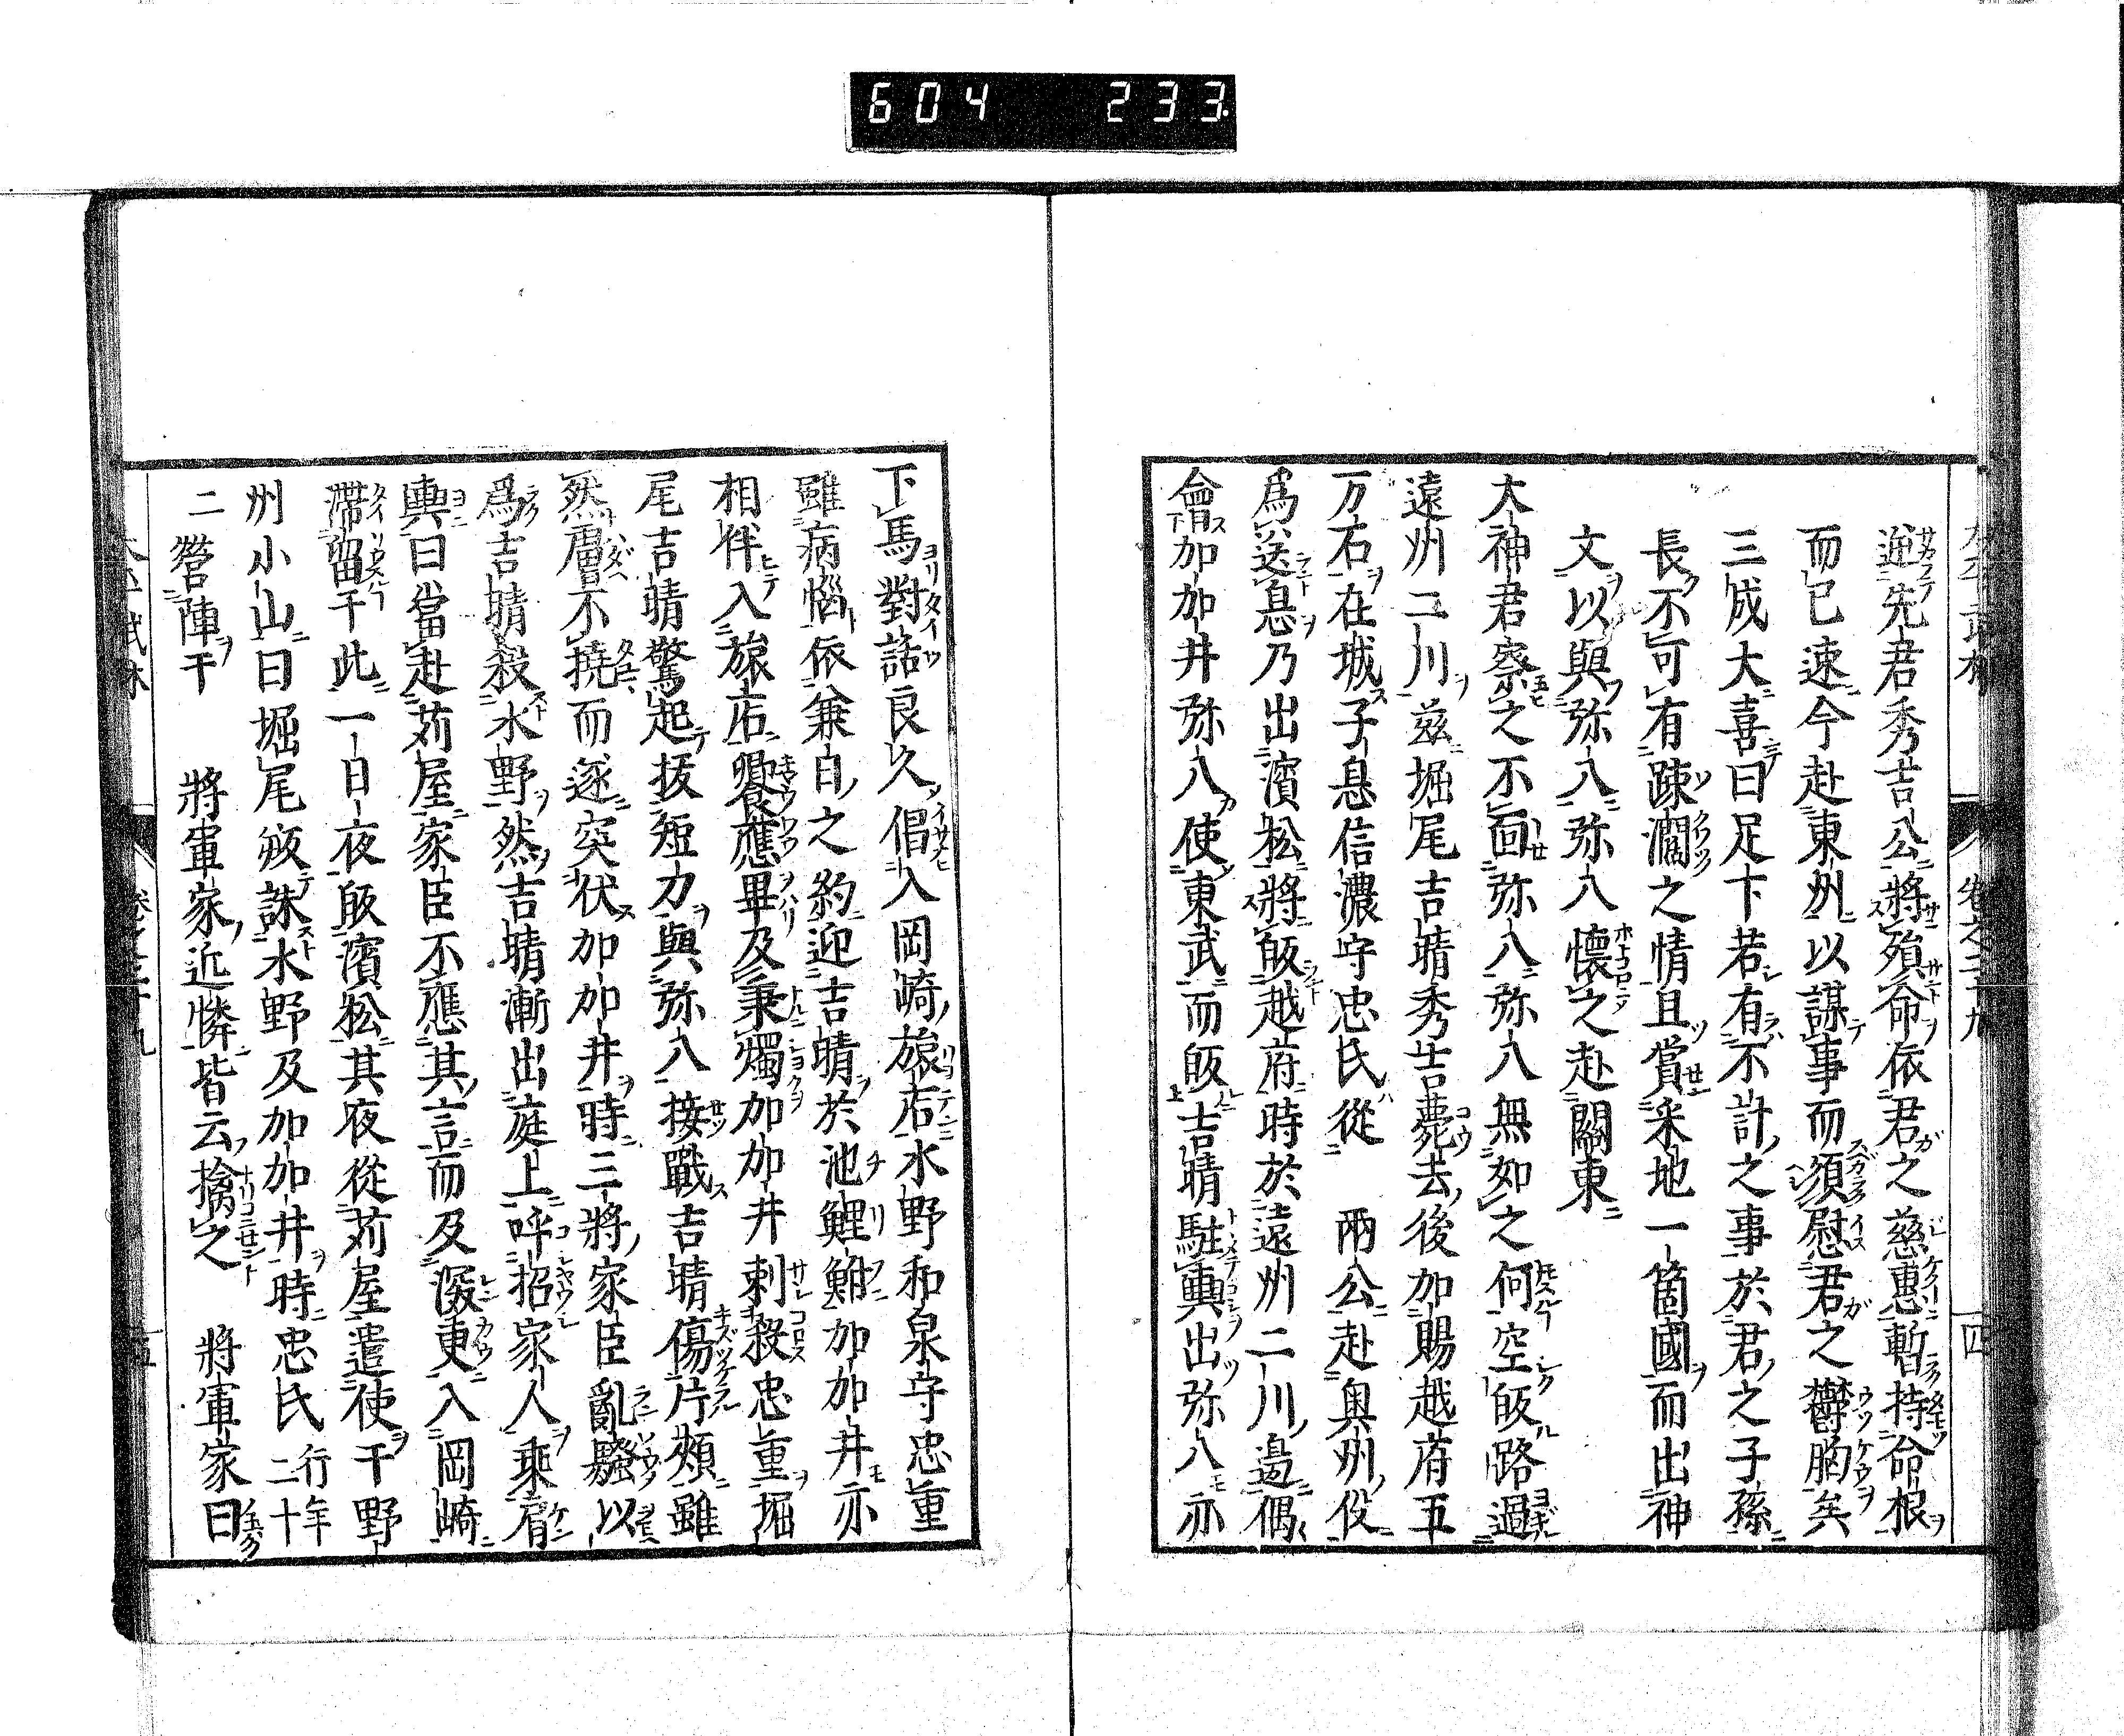 604 233.
逆先君秀吉公將殞命依君之慈惠暫持命根
而已速今赴東州以謀事而須慰君之欝胸矣
三成大喜曰足下若有不計之事於君之子孫
長不可有踈濶之情且賞釆地一箇國而出神
文以與弥八弥八懷之赴關東
大神君察之不面弥八弥八無如之何空皈路過
遠州二川茲堀尾吉晴秀吉薨去後加賜越府五
万石在城子息信濃守忠氏從 兩公赴奥州役
爲送息乃出濱松將皈越府時於遠州二川邉偶
會加加井弥八使東武而皈吉晴駐輿出弥八亦
卷之三十九 四
下馬對話良久倡入岡崎旅店水野和泉守忠重
雖病惱依兼日之約迎吉晴於池鯉鮒加加井亦
相伴入旅店饗應畢及秉燭加加井刺殺忠重堀
尾吉晴驚起抜短刀與弥八接戰吉晴傷片頰雖
然膚不撓而逐突伏加加井時三將家臣亂騷以
爲吉晴殺水野然吉晴漸出庭上呼招家人乘肩
輿曰當赴苅屋家臣不應其言而及深更入岡崎
滯留于此一日夜皈濱松其夜從苅屋遣使于野
州小山曰堀尾皈誅水野及加加井時忠氏行年二十
二營陣于 將軍家近憐皆云擒之 將軍家曰
五